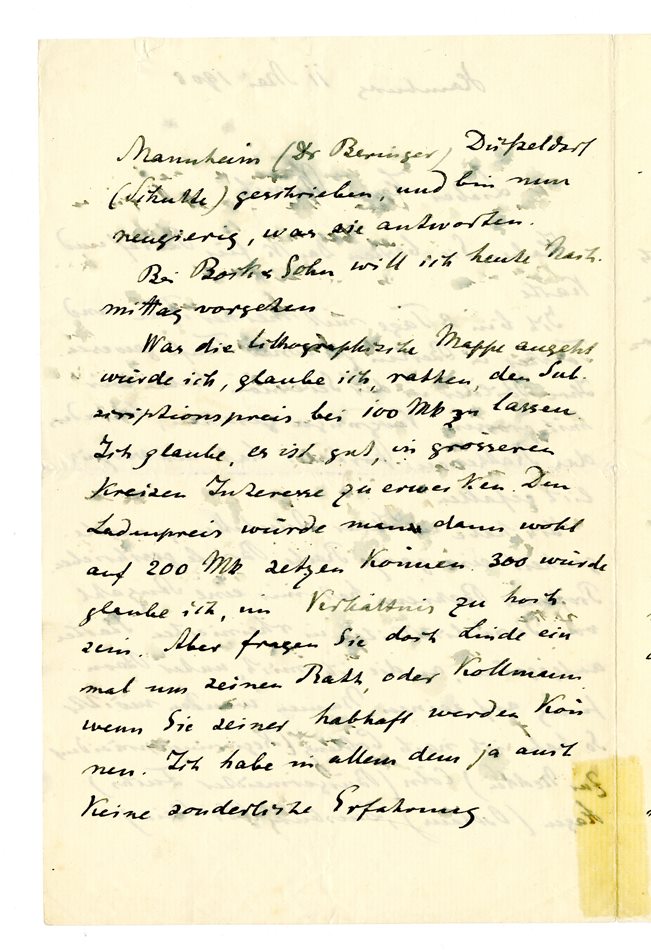 Mannheim (Dr Beringer) Düsseldorf
(Schulte) geschrieben, und bin nun
neugierig, was sie antworten.
Bei Bock & Sohn will ich heute Nach-
mittag vorgehen
Was die lithographische Mappe angeht
würde ich, glaube ich, rathen, den Sub-
scriptionspreis bei 100 Mk zu lassen.
Ich glaube, es ist gut, in grösseren
Kreisen Interesse zu erwecken. Den
Ladenpreis würde man dann wohl
auf 200 Mk setzen können. 300 würde
glaube ich, im Verhältnis zu hoch
sein. Aber fragen Sie doch Linde ein
mal um seinen Rath, oder Kollmann
wenn Sie seiner habhaft werden kön
nen. Ich habe in allem dem ja auch
keine sonderliche Erfahrung